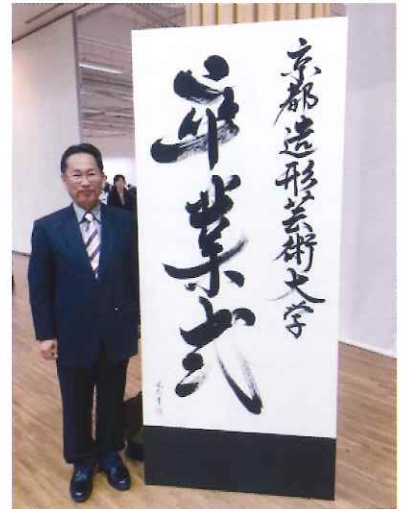 京都造形芸術大学
卒業式